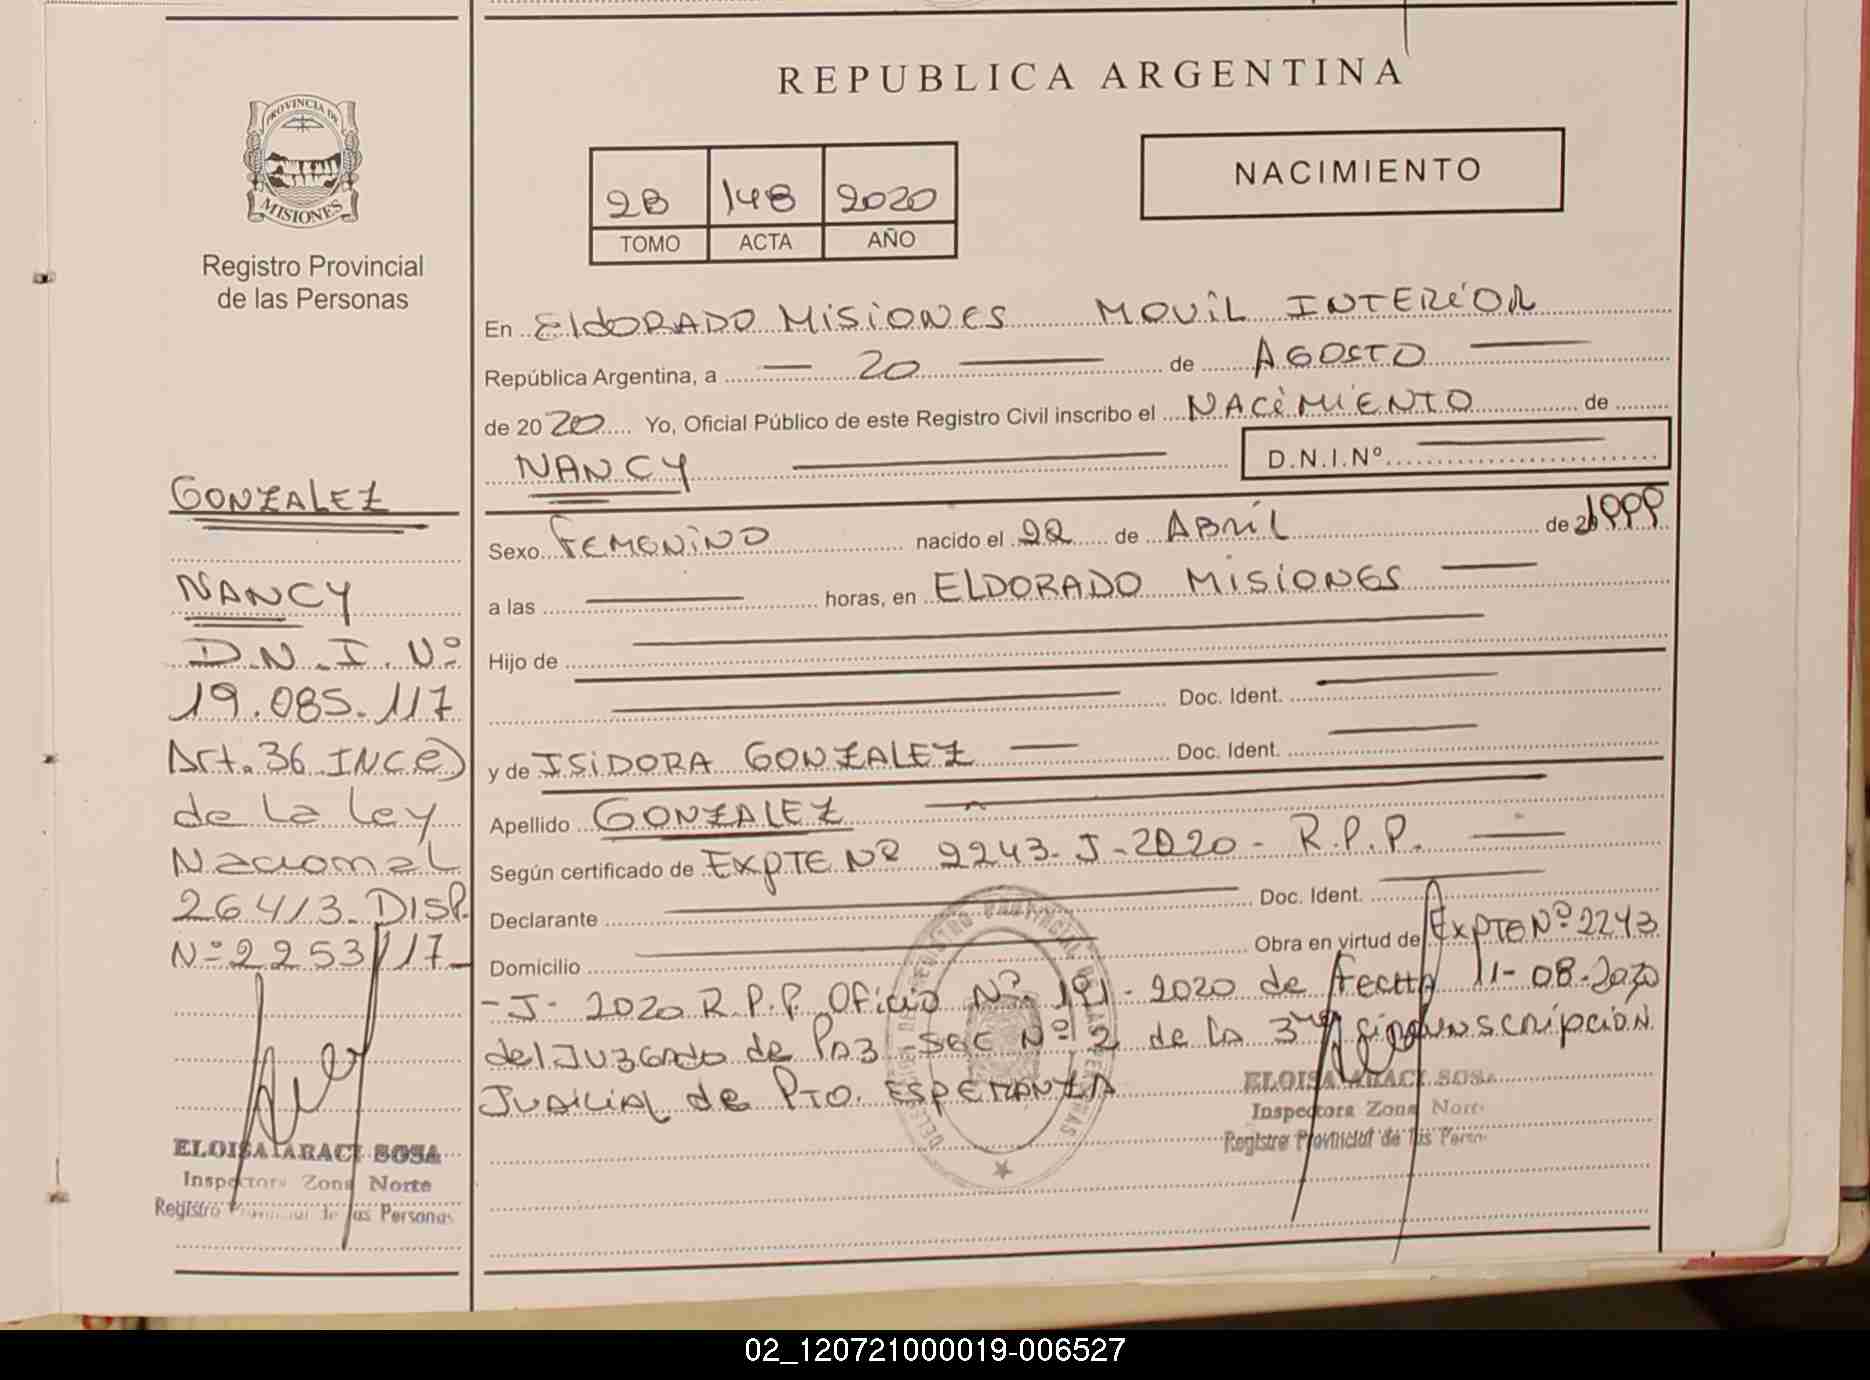 REPUBLICA ARGENTINA
PROVINCIA DE
MISIONES
Registro Provincial
de las Personas
2B 148 2020
TOMO ACTA AÑO
NACIMIENTO
En ElDORADO MISIONES MOVIL INTERIOR
República Argentina, a 20 de AGOSTO
de 2020 Yo, Oficial Público de este Registro Civil inscribo el NACIMIENTO de
NANCY D.N.I.Nº
Sexo FEMENINO nacido el 22 de ABRIL de 20 1999
a las horas, en ELDORADO MISIONES
Hijo de
Doc. Ident.
y de ISIDORA GONZALEZ Doc. Ident.
Apellido GONZALEZ
Según certificado de EXPTE Nº 2243-J-2020- R.P.P.
Declarante Doc. Ident.
Domicilio Obra en virtud de EXPTE Nº 2243
-J- 2020 R.P.P. Oficio Nº 191-2020 de fecha 11-08-2020
del Juzgado de Paz - SEC Nº 2 de la 3ra circunscripcion
Judicial de Pto. ESPERANZA
ELOISA ARACI SOSA
Inspectora Zona Norte
Registro Provincial de las Perso
GONZALEZ
NANCY
D.N.I. Nº
19.085.117
Art. 36 INC e)
de la ley
Nacional
26413-DISP.
Nº 2253/17-
ELOISA ARACI SOSA
Inspectora Zona Norte
Registro Provincial de las Personas
02_120721000019-006527